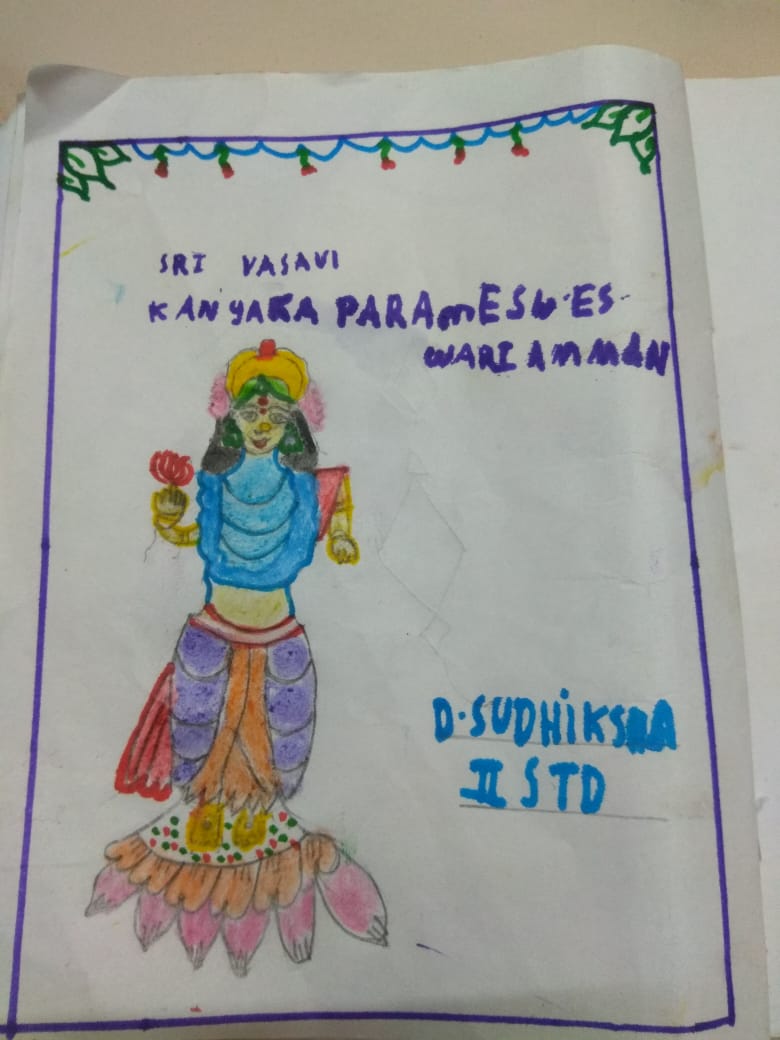 SRI VASAVI
KANYAKA PARAMESW-ES-
WARI AMMAN
D.SUDHIKSHA
II STD